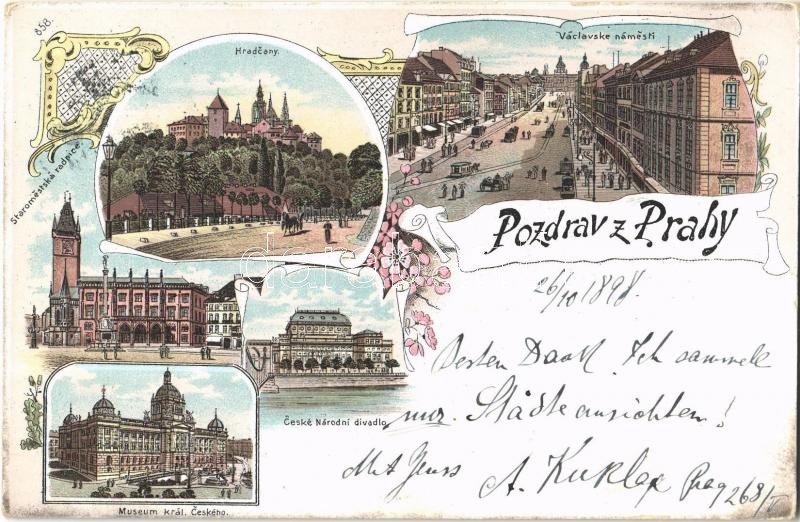 858.
Hradčany.
Václavske náměstí
Staroměstská radnice
Pozdrav z Prahy
26/10 1898.
Besten Dank. Ich sammele
nur Städteansichten!
Mit Gruss A. Kukla Prag
České Národní divadlo
Museum král. Českého.